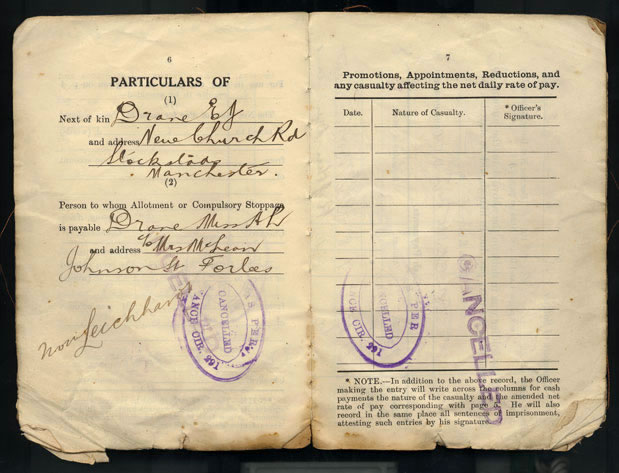 6
PARTICULARS OF
(1)
Next of kin Drane E J
and address New Church Rd
Manchester.
(2)
Person to whom Allotment or Compulsory Stoppage
is payable Drane Miss A L
and address c/o Mrs McLean
Johnson St Forbes
now Leichhardt
AS PER
CANCELLED
ANCE CIR. 291
7
Promotions, Appointments, Reductions, and
any casualty affecting the net daily rate of pay.
Date. Nature of Casualty. * Officer's
Signature.
PER
CANCELLED
NCE CIR. 291
CANCELLED
* NOTE.—In addition to the above record, the Officer
making the entry will write across the columns for cash
payments the nature of the casualty and the amended
net rate of pay corresponding with page He will also
record in the same place all sentences of imprisonment,
attesting such entries by his signature.